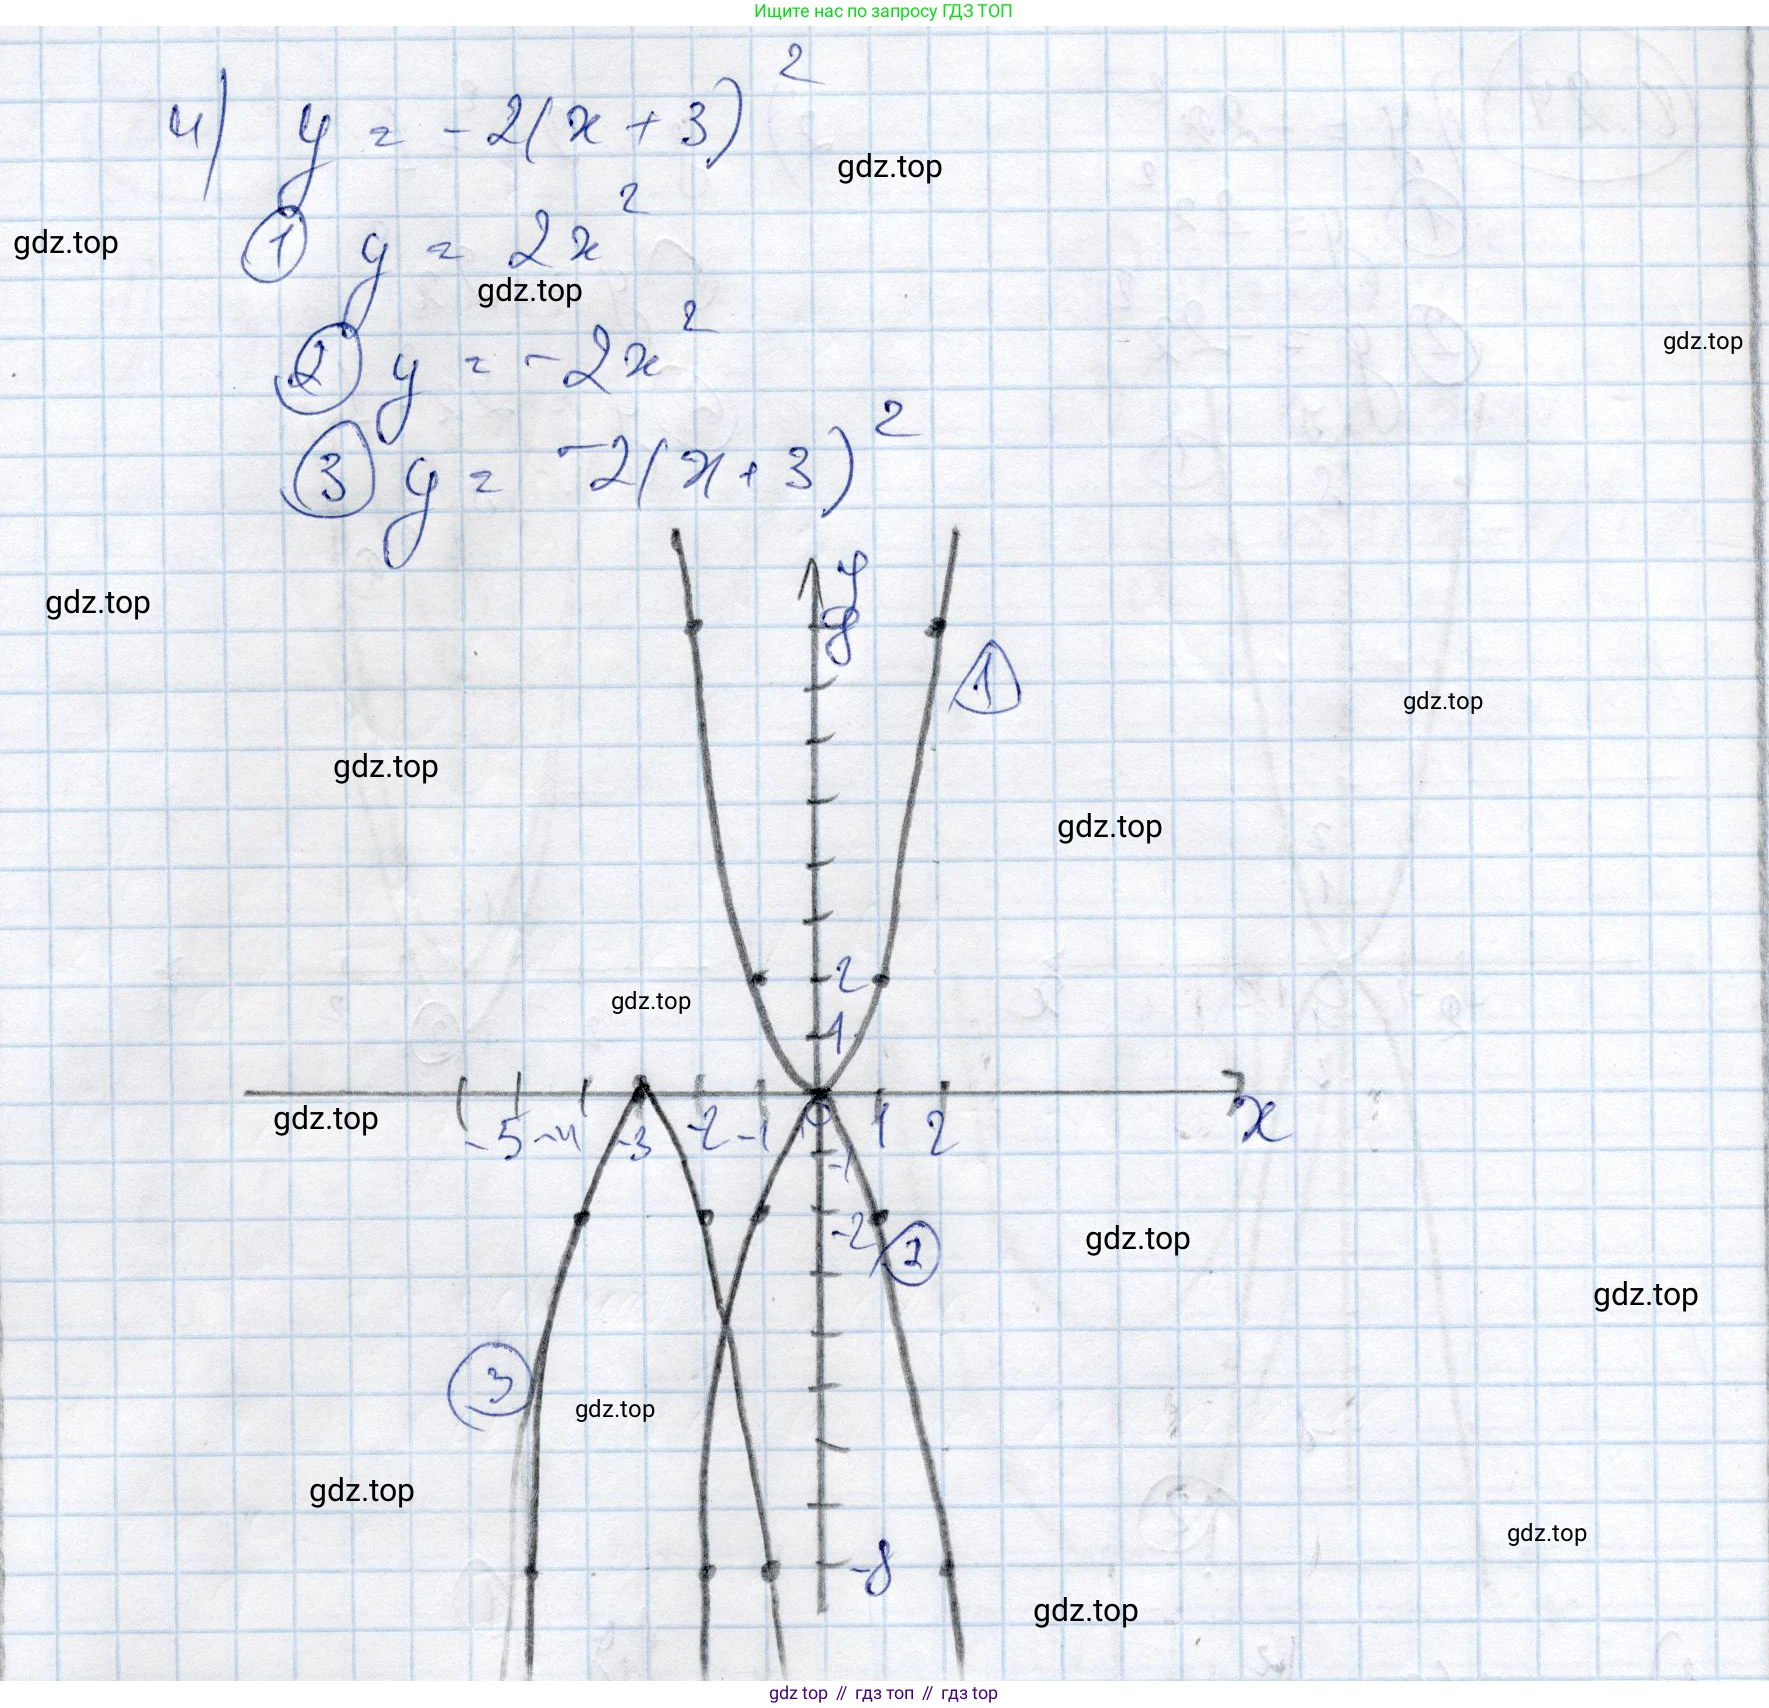 Ищите нас по запросу ГДЗ ТОП
4) y = -2(x + 3)²
gdz.top
① y = 2x²
gdz.top
gdz.top
② y = -2x²
gdz.top
③ y = -2(x + 3)²
y
gdz.top
8
1
gdz.top
gdz.top
gdz.top
2
gdz.top
1
gdz.top
-5 -4 -3 -2 -1 0 1 2 x
-1
-2
2
gdz.top
gdz.top
3
gdz.top
gdz.top
gdz.top
-8
gdz.top
gdz top // гдз топ // гдз top